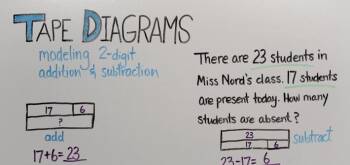 TAPE DIAGRAMS
modeling 2-digit
addition & subtraction
17 6
?
add
17+6=23
There are 23 students in
Miss Nord's class. 17 students
are present today. How many
students are absent?
23
17 6
subtract
23-17=6